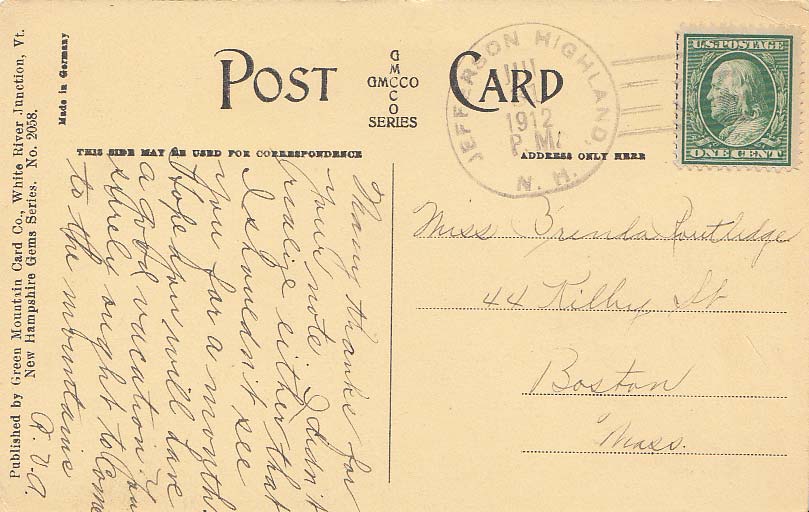 Published by Green Mountain Card Co., White River Junction, Vt.
New Hampshire Gems Series. No. 2058.
Made in Germany
POST CARD
G
M
GMCCO
C
O
SERIES
JEFFERSON HIGHLAND, N. H.
1912
P. M.
U.S. POSTAGE
ONE CENT
THIS SIDE MAY BE USED FOR CORRESPONDENCE
ADDRESS ONLY HERE
Many thanks for
your note. I didn't
realize either that
I shouldn't see
you for a month.
Hope you will have
a good vacation. You
surely ought to come
to the mountains
Q. V-A.
Miss Brenda Routlidge
44 Kilby St
Boston
Mass.